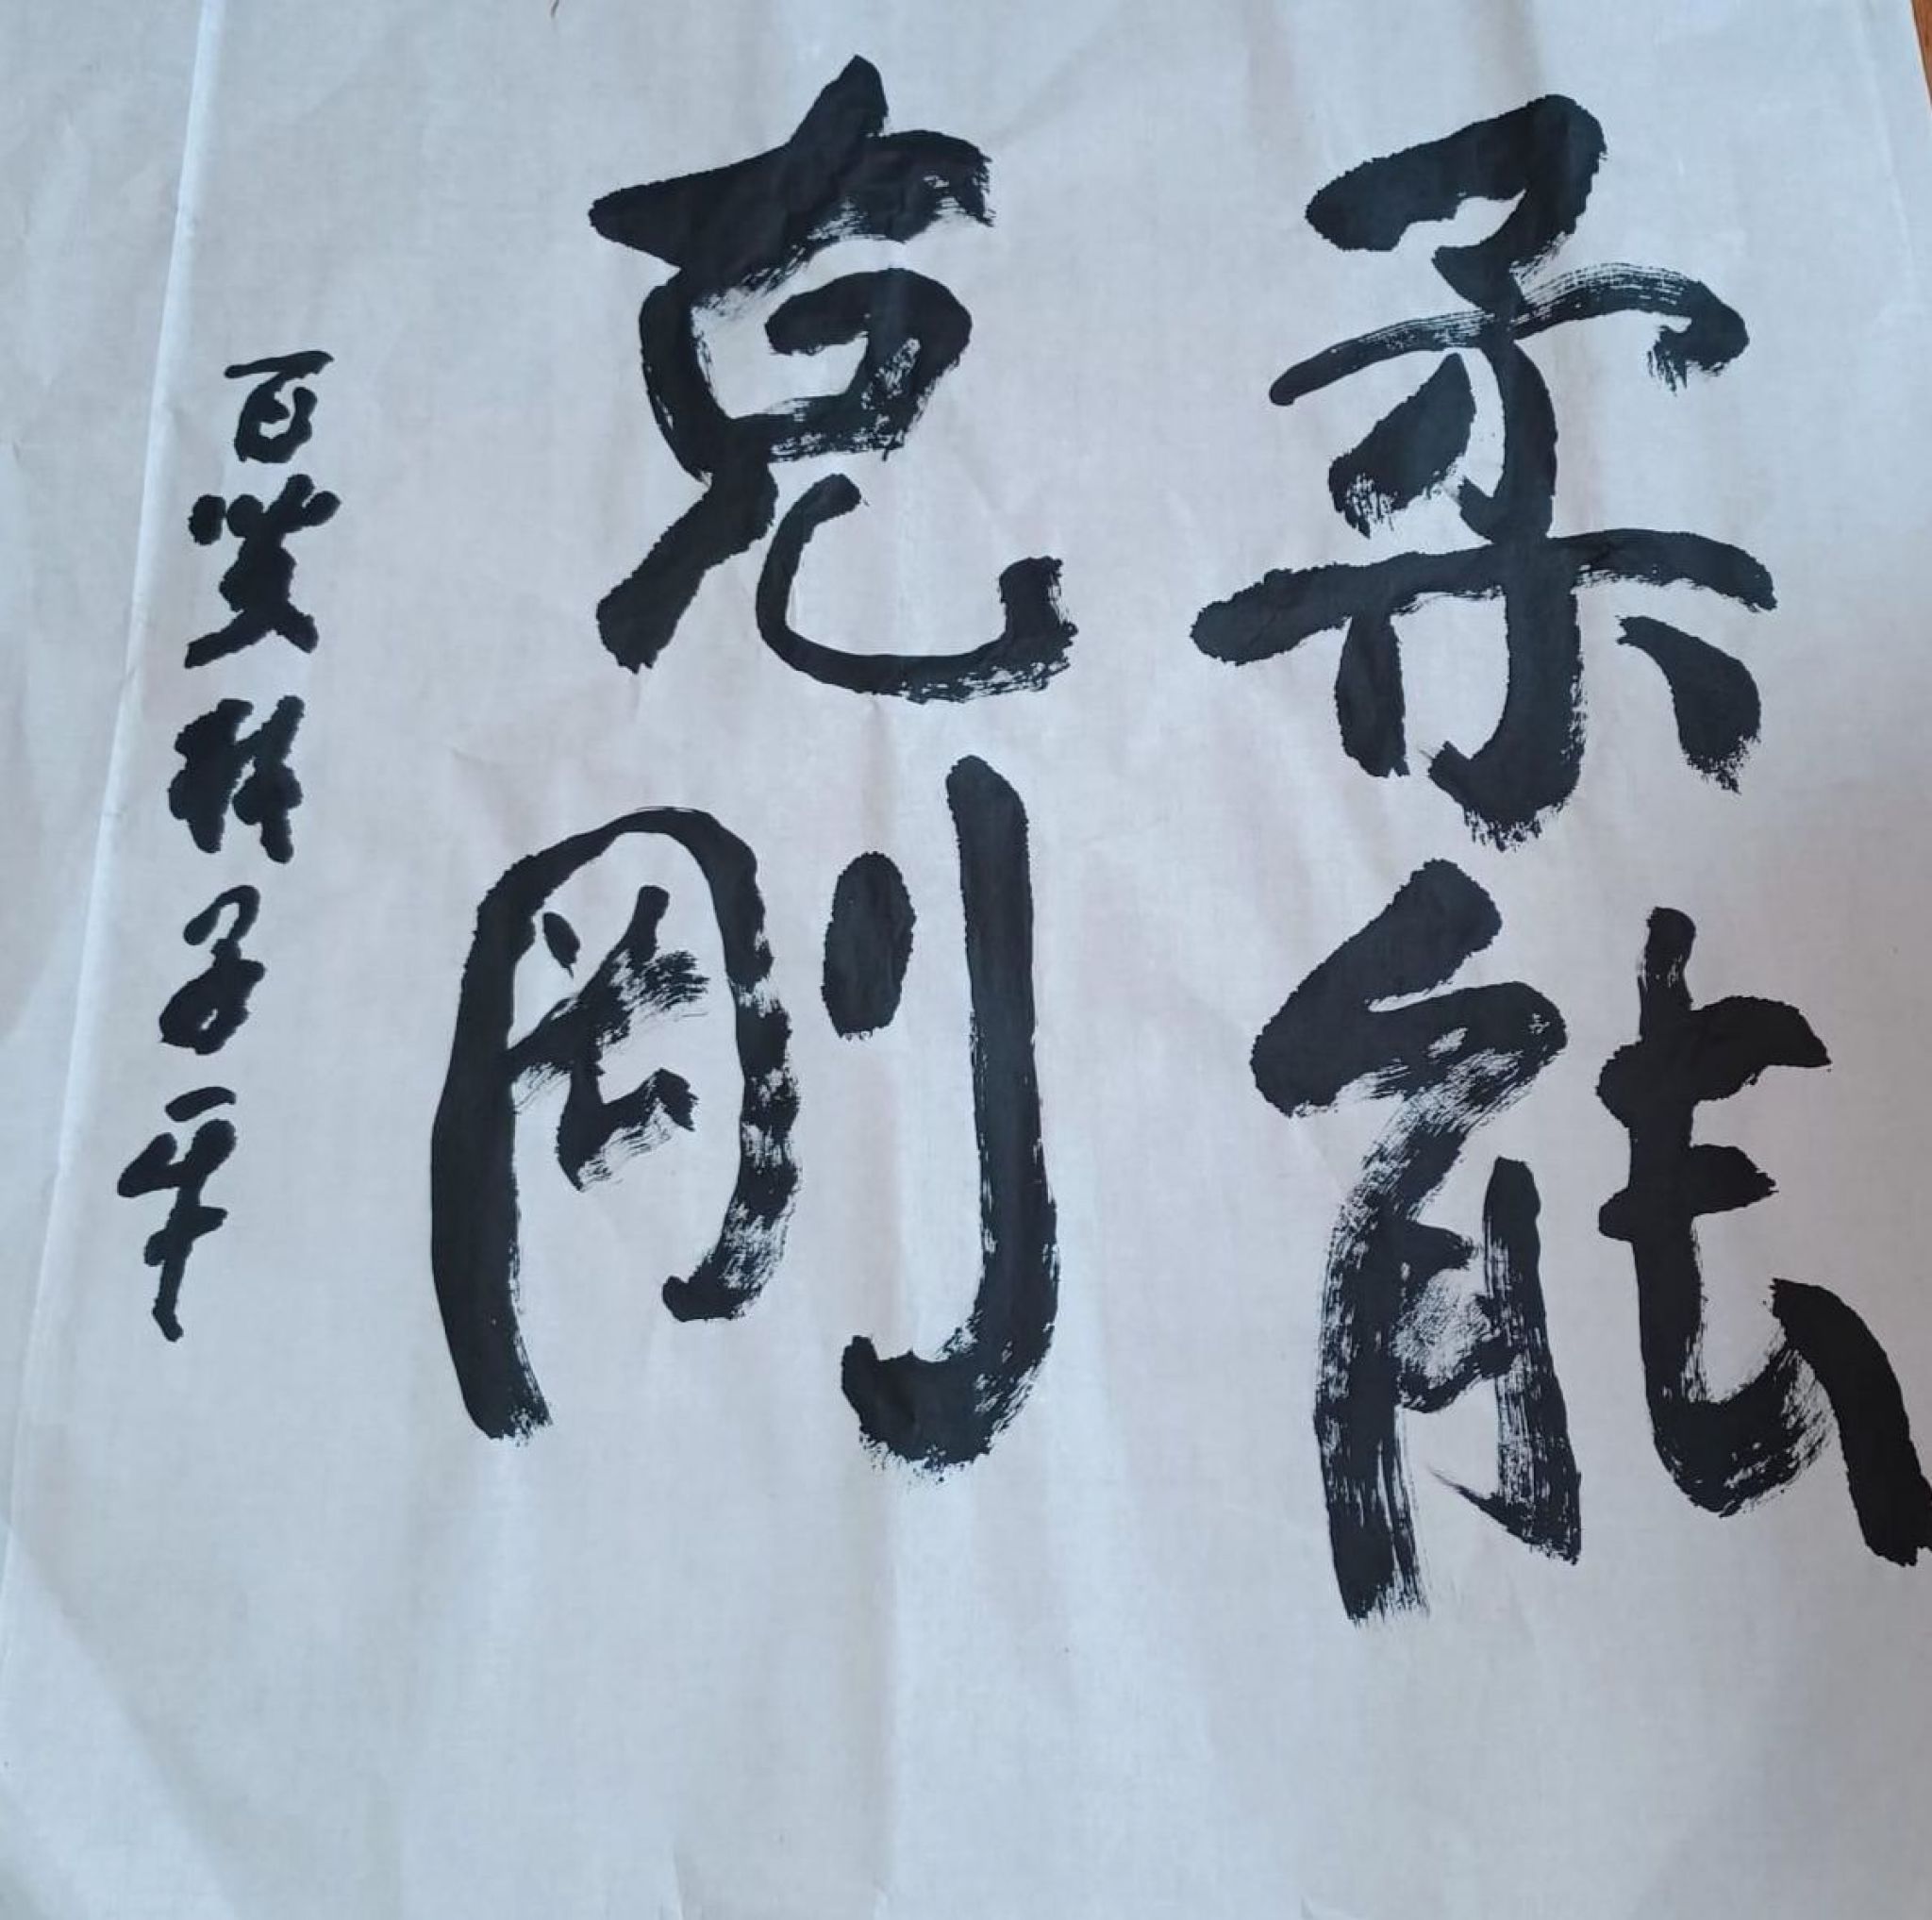 柔能
克剛
百笑林子平